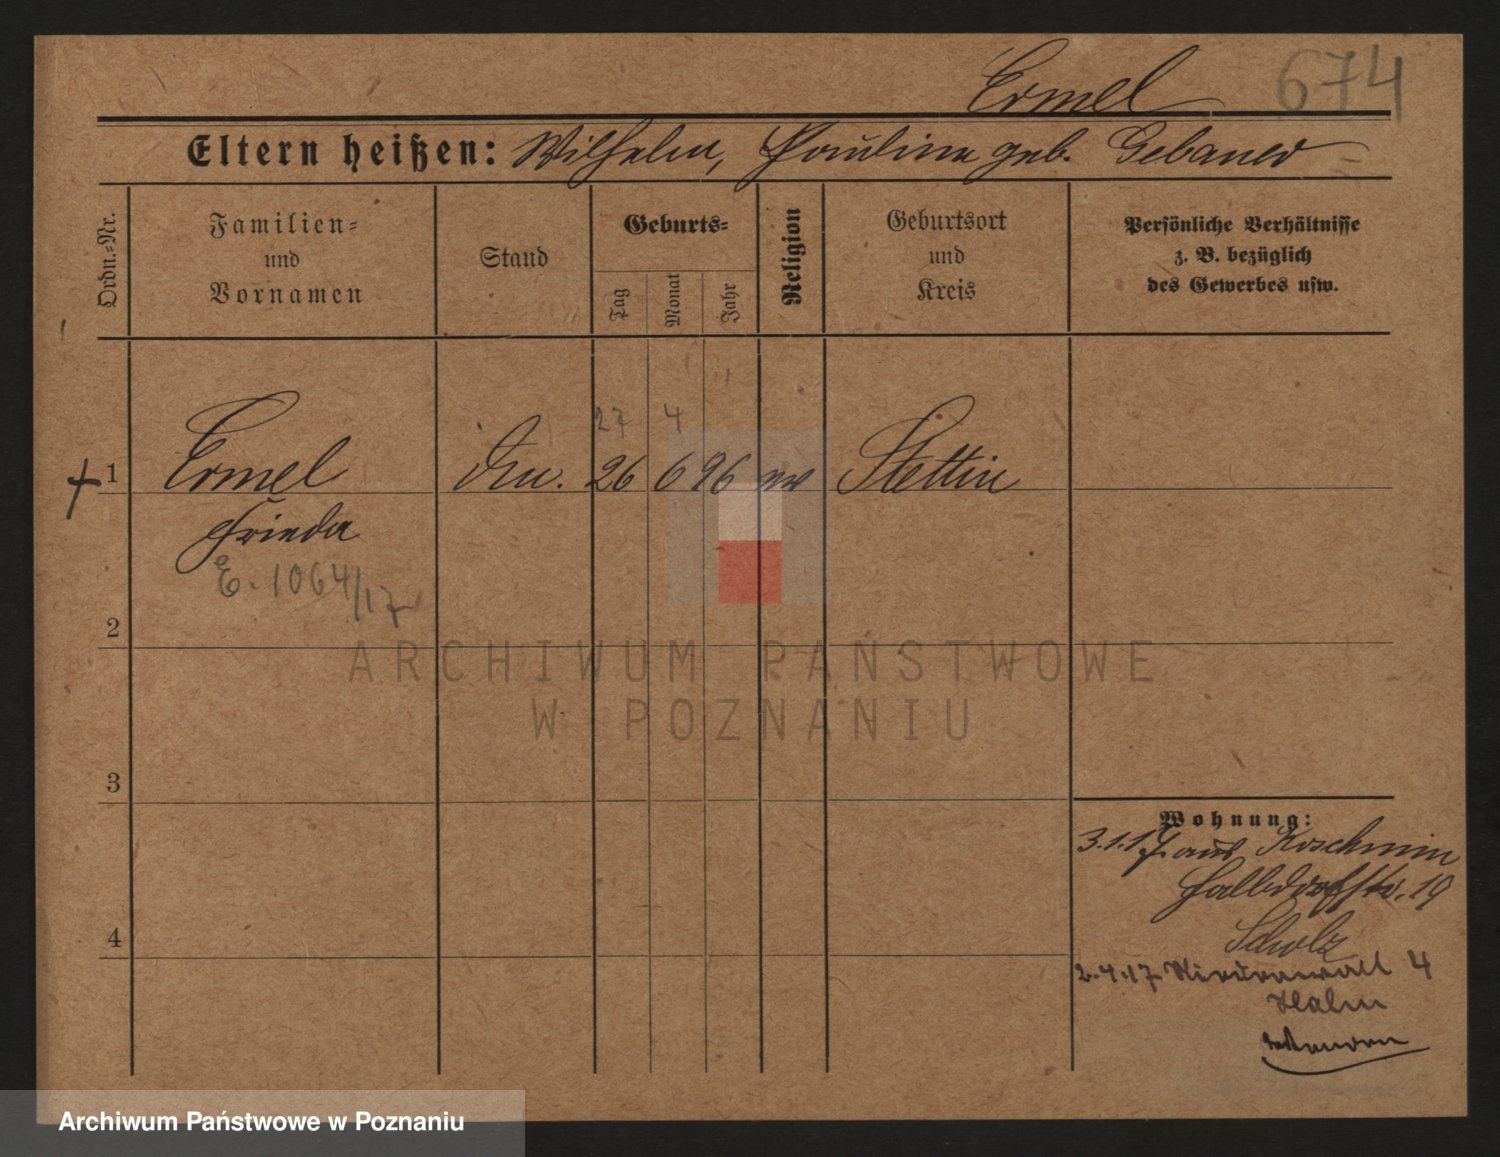 Ermel 674
Eltern heißen: Wilhelm, Pauline geb. Gebauer
Ordn.=Nr.
Familien=
und
Vornamen
Stand
Geburts=
Tag
Monat
Jahr
Religion
Geburtsort
und
Kreis
Persönliche Verhältnisse
z. B. bezüglich
des Gewerbes usw.
27 4
1 Ermel 26 6 96 ev Stettin
Frieda
E. 1064/17
2
3
4
Wohnung:
3.1.17 aus Koschmin
Halbdorfstr. 19
Scholz
2.4.17 Niederwall 4
Hahn
ARCHIWUM PAŃSTWOWE
W POZNANIU
Archiwum Państwowe w Poznaniu